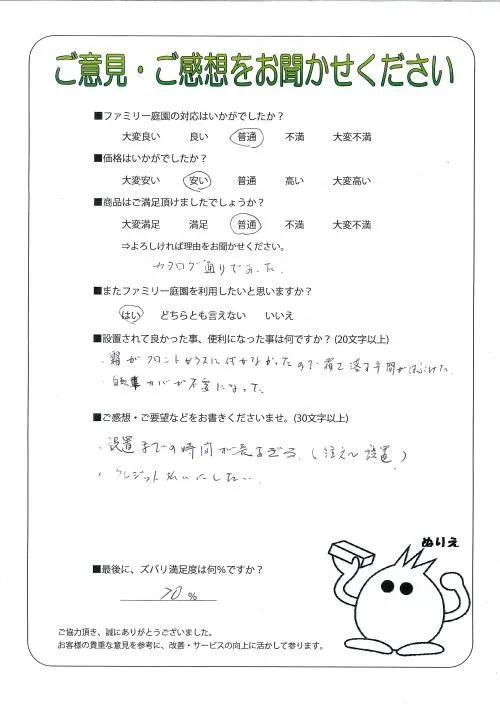 ご意見・ご感想をお聞かせください
■ファミリー庭園の対応はいかがでしたか?
大変良い 良い 普通 不満 大変不満
■価格はいかがでしたか?
大変安い 安い 普通 高い 大変高い
■商品はご満足頂けましたでしょうか?
大変満足 満足 普通 不満 大変不満
⇒よろしければ理由をお聞かせください。
カタログ通りであった.
■またファミリー庭園を利用したいと思いますか?
はい どちらとも言えない いいえ
■設置されて良かった事、便利になった事は何ですか? (20文字以上)
・霜がフロントガラスに付かなかったので霜を落す手間がはぶけた.
・自転車カバーが不要になった.
■ご感想・ご要望などをお書きくださいませ。(30文字以上)
・設置までの時間が長すぎる.(注文〜設置)
・クレジット払いにしたい.
ぬりえ
■最後に、ズバリ満足度は何%ですか?
70 %
ご協力頂き、誠にありがとうございました。
お客様の貴重な意見を参考に、改善・サービスの向上に活かして参ります。